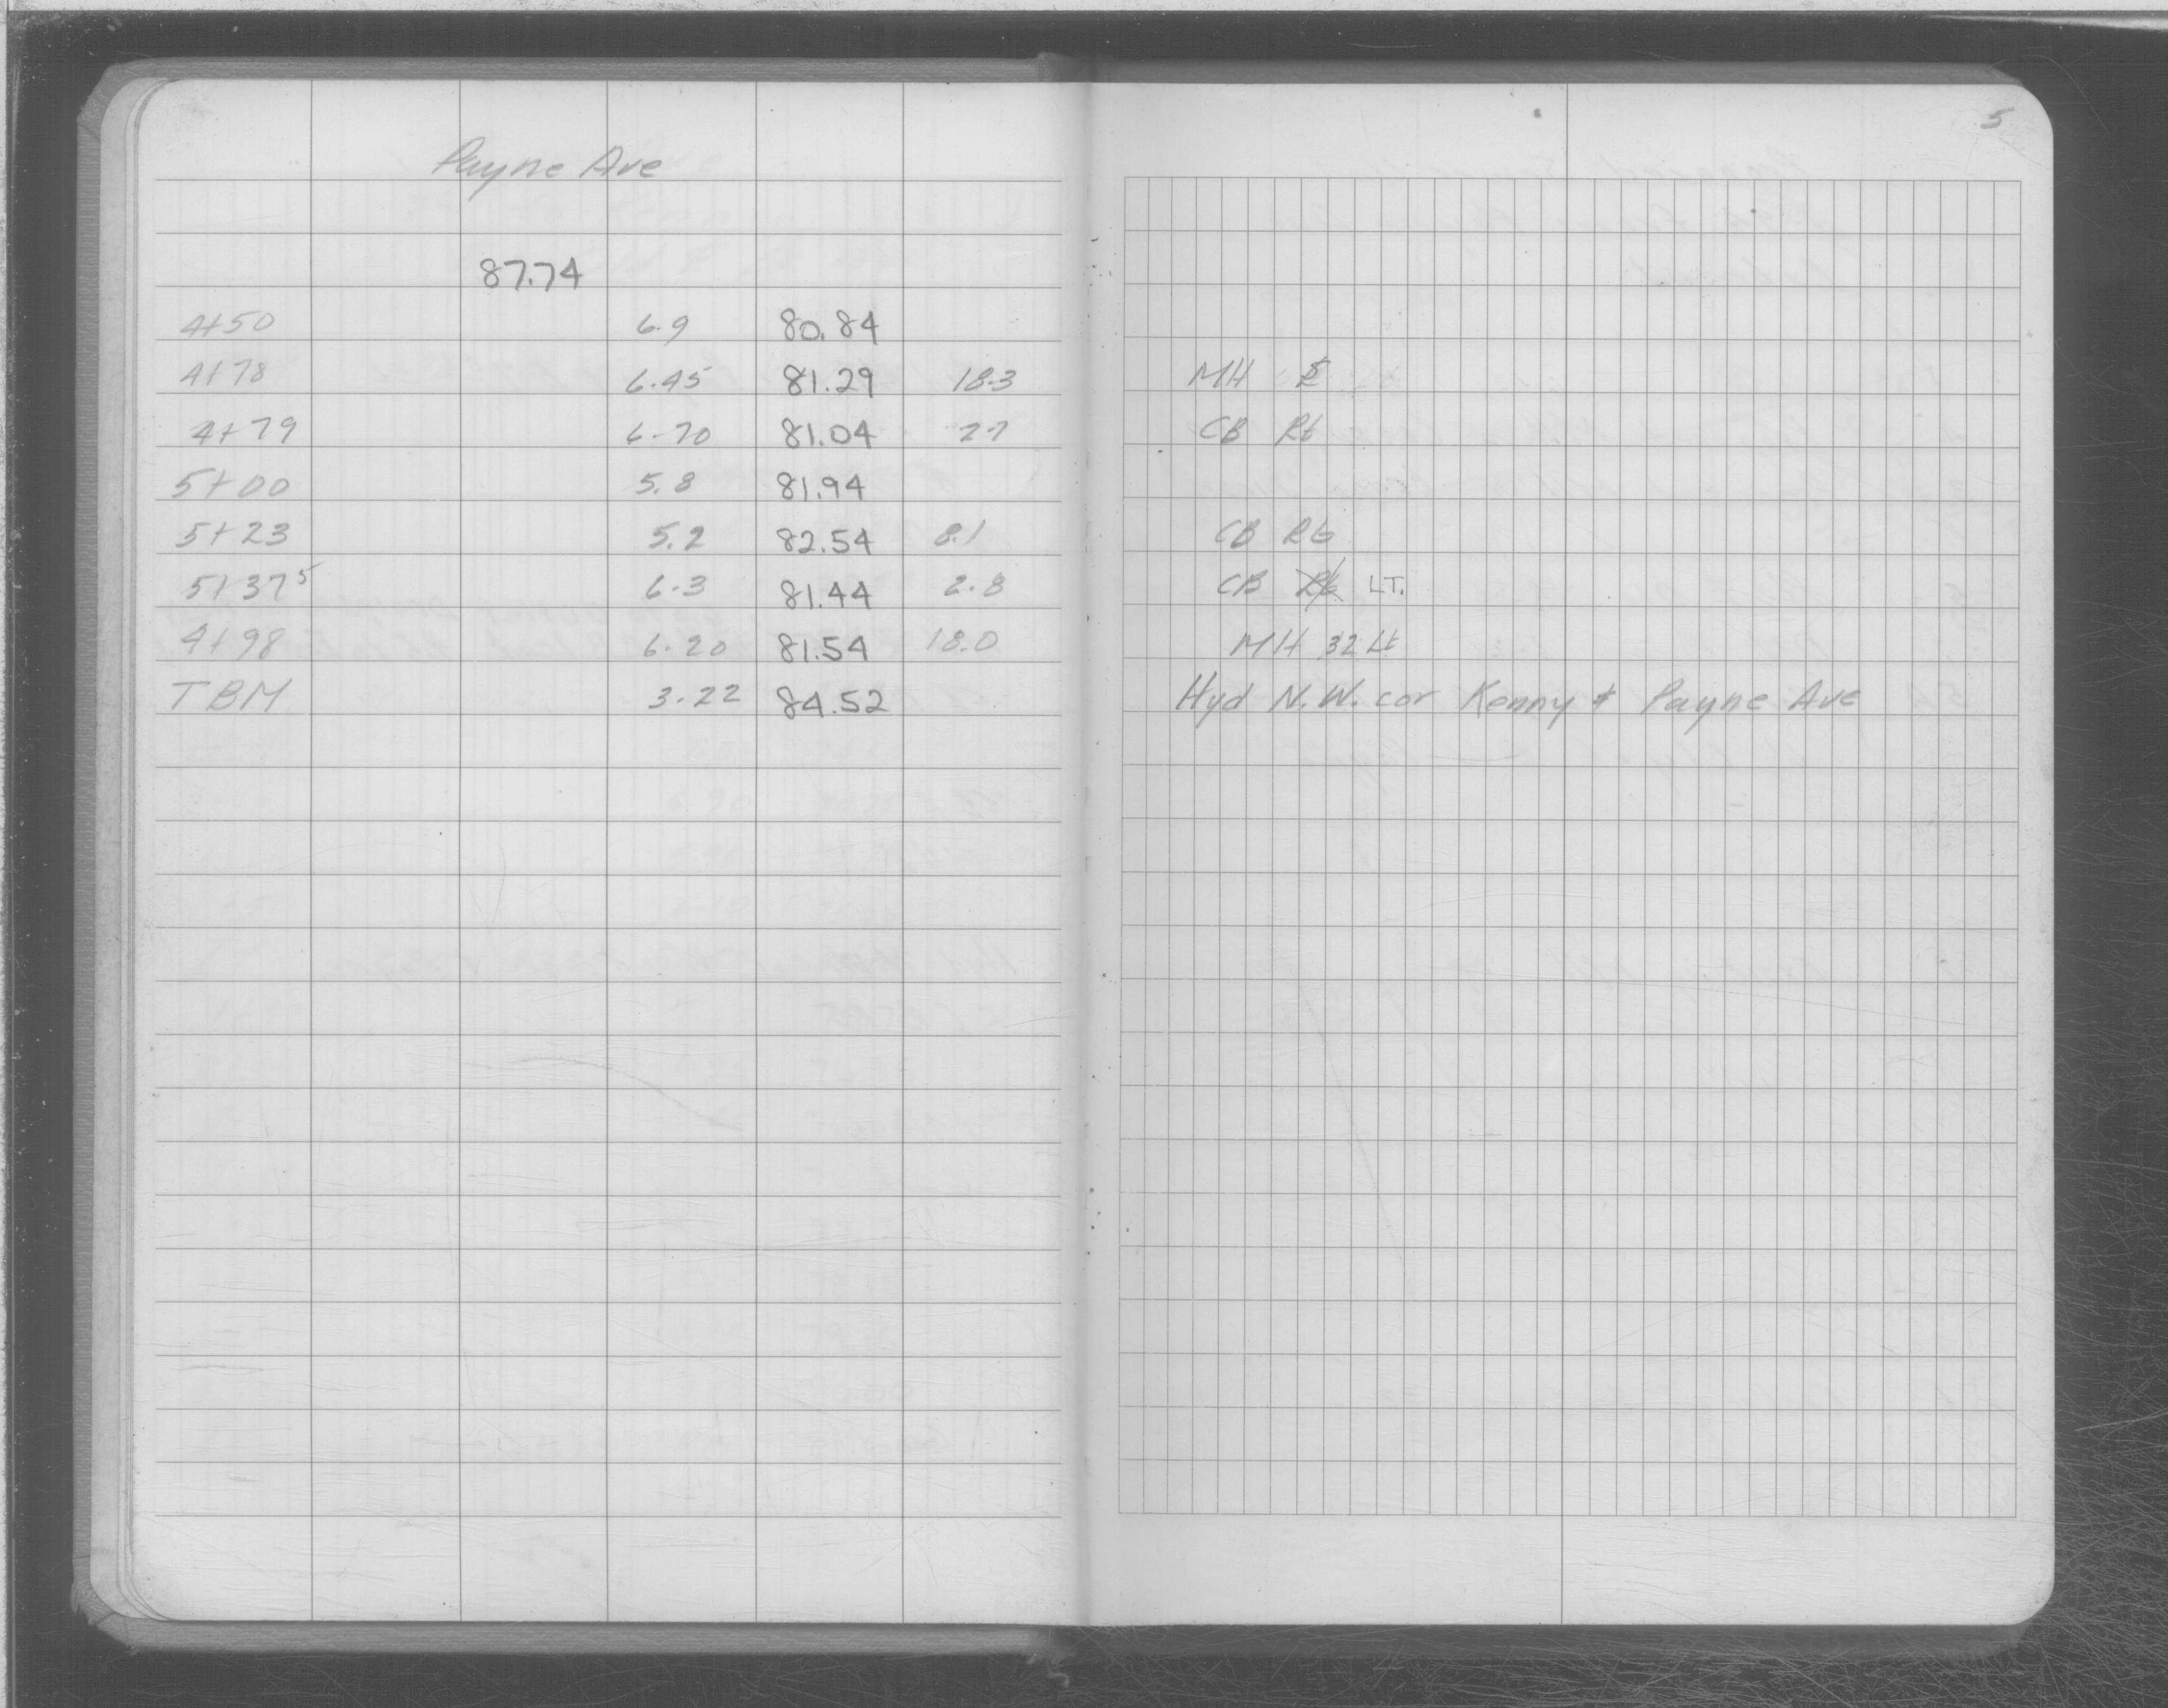 5
Payne Ave
87.74
4+50 6.9 80.84
4+78 6.45 81.29 18.3 MH
4+79 6.70 81.04 2.7 CB Rt
5+00 5.8 81.94
5+23 5.2 82.54 8.1 CB Rt
5+37⁵ 6.3 81.44 2.8 CB Rt LT.
4+98 6.20 81.54 18.0 MH 32 Lt
TBM 3.22 84.52 Hyd N.W. cor Kenny & Payne Ave